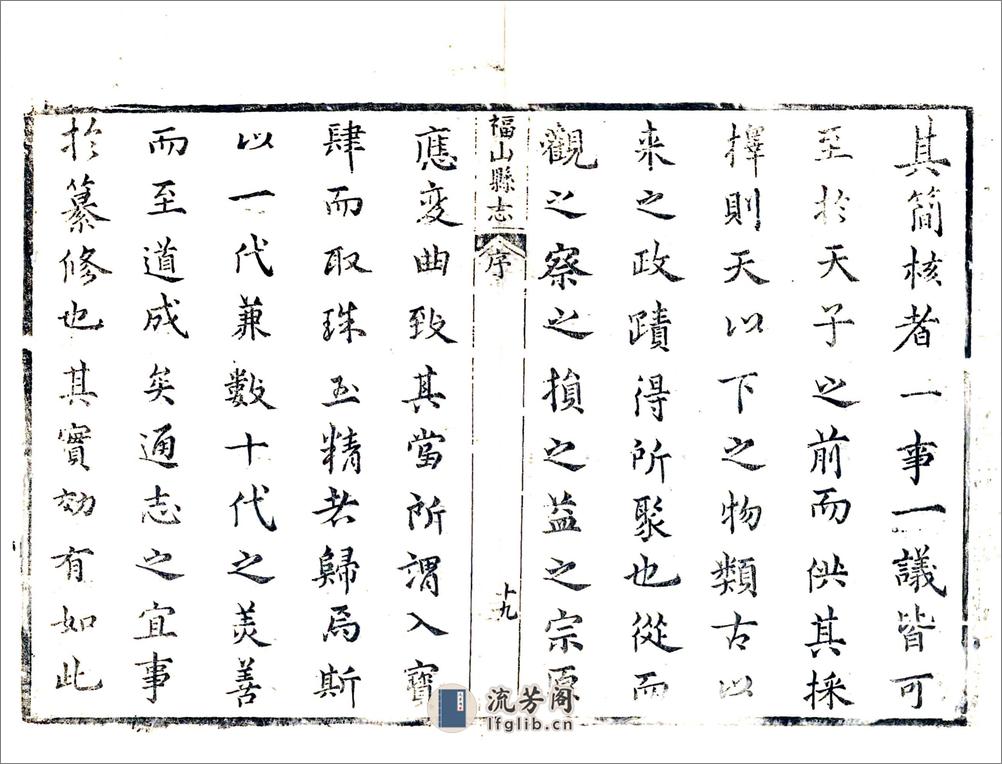 其簡核者一事一議皆可
至於天子之前而供其採
擇則天以下之物類古以
来之政蹟得所聚也從而
觀之察之損之益之宗原
福山縣志
序
十九
應变曲致其當所謂入寶
肆而取珠玉精者歸焉斯
以一代兼數十代之美善
而至道成矣通志之宜事
於纂修也其實効有如此
流芳阁
lfglib.cn